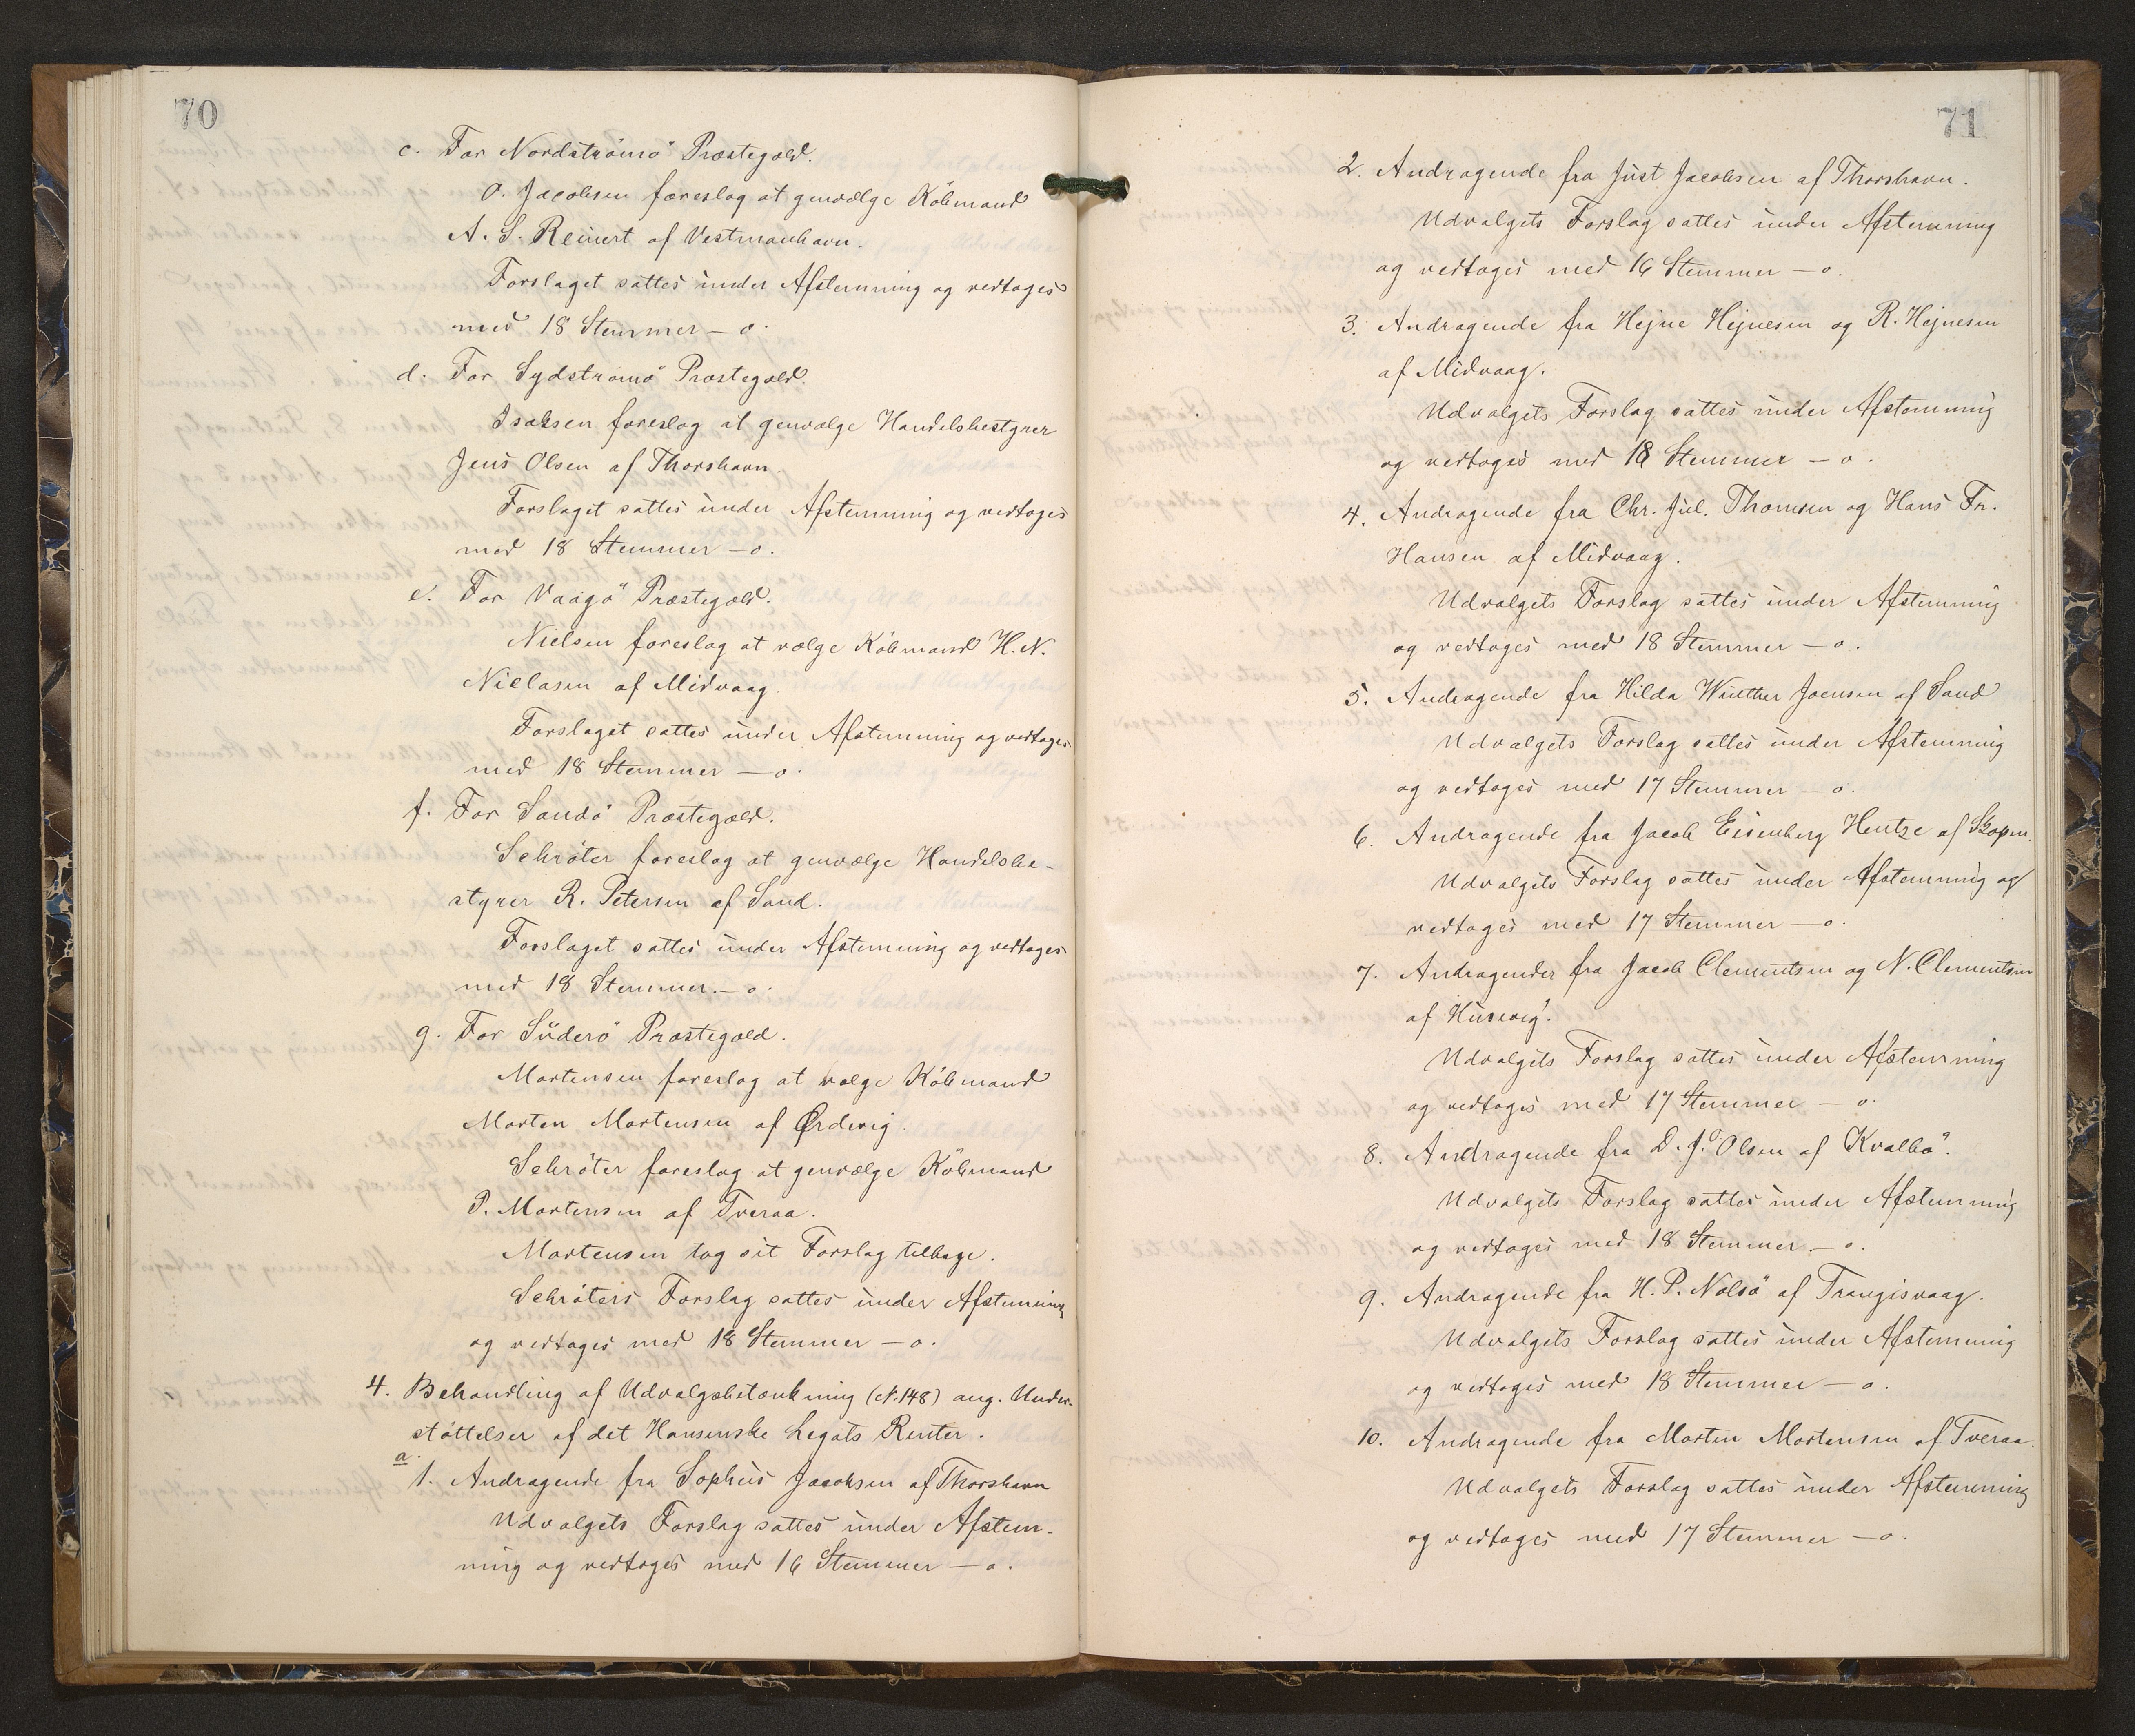 70
c. For Nordströmö Præstegæld.
O. Jacobsen foreslog at genvælge Köbmand
A. S. Reinert af Vestmanhavn.
Forslaget sattes under Afstemning og vedtoges
med 18 Stemmer – o.
d. For Sydströmö Præstegæld.
Isaksen foreslog at genvælge Handelsbestyrer
Jens Olsen af Thorshavn.
Forslaget sattes under Afstemning og vedtoges
med 18 Stemmer – o.
e. For Vaagö Præstegæld.
Nielsen foreslog at vælge Köbmand H. N.
Nielasen af Midvaag.
Forslaget sattes under Afstemning og vedtoges
med 18 Stemmer – o.
f. For Sandö Præstegæld.
Schröter foreslog at genvælge Handelsbe-
styrer R. Petersen af Sand.
Forslaget sattes under Afstemning og vedtoges
med 18 Stemmer. – o.
g. For Suderö Præstegæld.
Mortensen foreslog at vælge Köbmand
Morten Mortensen af Ørdevig.
Schröter foreslog at genvælge Köbmand
P. Mortensen af Tveraa.
Mortensen tog sit Forslag tilbage.
Schröters Forslag sattes under Afstemning
og vedtoges med 18 Stemmer – o.
4. Behandling af Udvalgsbetænkning (N. 148) ang. Under-
støttelser af det Hansenske Legats Renter.
a.
1. Andragende fra Sophus Jacobsen af Thorshavn
Udvalgets Forslag sattes under Afstem-
ning og vedtoges med 16 Stemmer – o.
71
2. Andragende fra Just Jacobsen af Thorshavn.
Udvalgets Forslag sattes under Afstemning
og vedtoges med 16 Stemmer – o.
3. Andragende fra Hejne Hejnesen og R. Hejnesen
af Midvaag.
Udvalgets Forslag sattes under Afstemning
og vedtoges med 18 Stemmer – o.
4. Andragende fra Chr. Jul. Thomsen og Hans Fr.
Hansen af Midvaag.
Udvalgets Forslag sattes under Afstemning
og vedtoges med 18 Stemmer – o.
5. Andragende fra Hilda Winther Joensen af Sand
Udvalgets Forslag sattes under Afstemning
og vedtoges med 17 Stemmer – o.
6. Andragende fra Jacob Eisenberg Hentze af Skopen.
Udvalgets Forslag sattes under Afstemning og
vedtoges med 17 Stemmer – o.
7. Andragender fra Jacob Clementsen og N. Clementsen
af Husevig.
Udvalgets Forslag sattes under Afstemning
og vedtoges med 17 Stemmer – o.
8. Andragende fra D. J. Olsen af Kvalbö.
Udvalgets Forslag sattes under Afstemning
og vedtoges med 18 Stemmer. – o.
9. Andragende fra H. P. Nolsö af Trangisvaag.
Udvalgets Forslag sattes under Afstemning
og vedtoges med 18 Stemmer – o.
10. Andragende fra Morten Mortensen af Tveraa.
Udvalgets Forslag sattes under Afstemning
og vedtoges med 17 Stemmer – o.